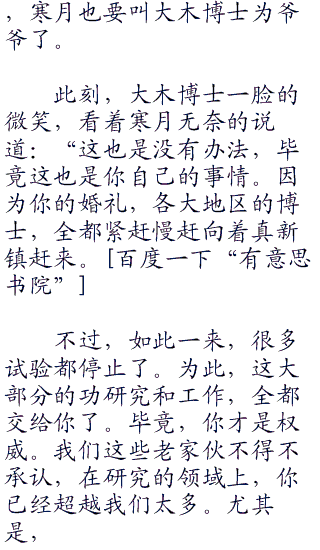 ，寒月也要叫大木博士为爷
爷了。
此刻，大木博士一脸的
微笑，看着寒月无奈的说
道：“这也是没有办法，毕
竟这也是你自己的事情。因
为你的婚礼，各大地区的博
士，全都紧赶慢赶向着真新
镇赶来。[百度一下“有意思
书院”]
不过，如此一来，很多
试验都停止了。为此，这大
部分的功研究和工作，全都
交给你了。毕竟，你才是权
威。我们这些老家伙不得不
承认，在研究的领域上，你
已经超越我们太多。尤其
是，